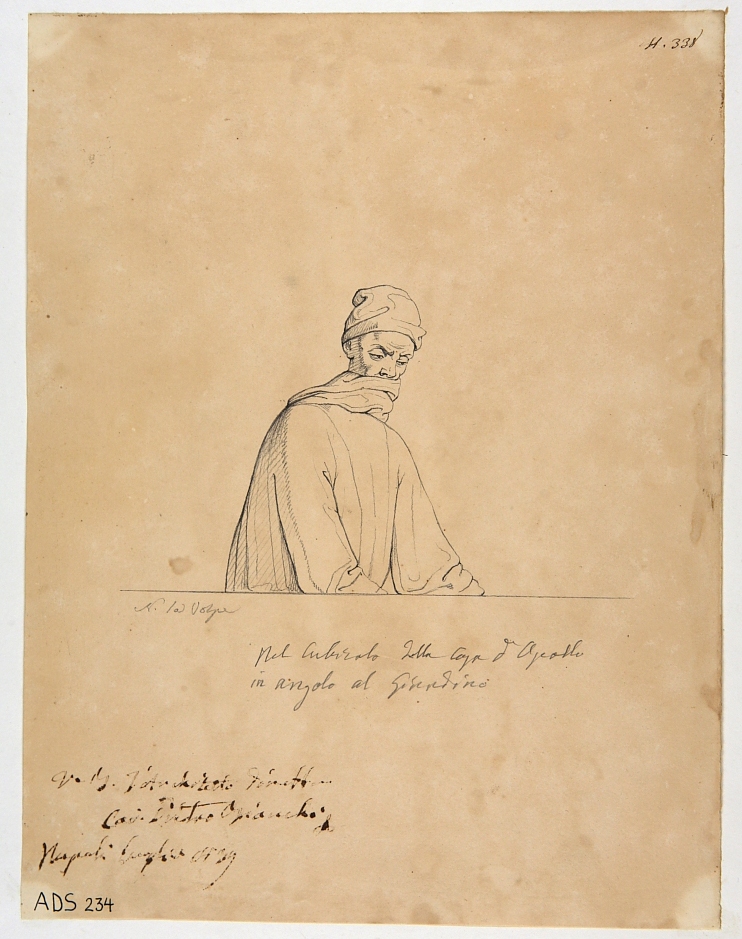 H. 338
N. La Volpe
Nel Cubicolo della casa d'Apollo
in angolo al Giardino
V. B. l'Architetto Direttore
Cav. Pietro Bianchi
Napoli luglio 1839
ADS 234